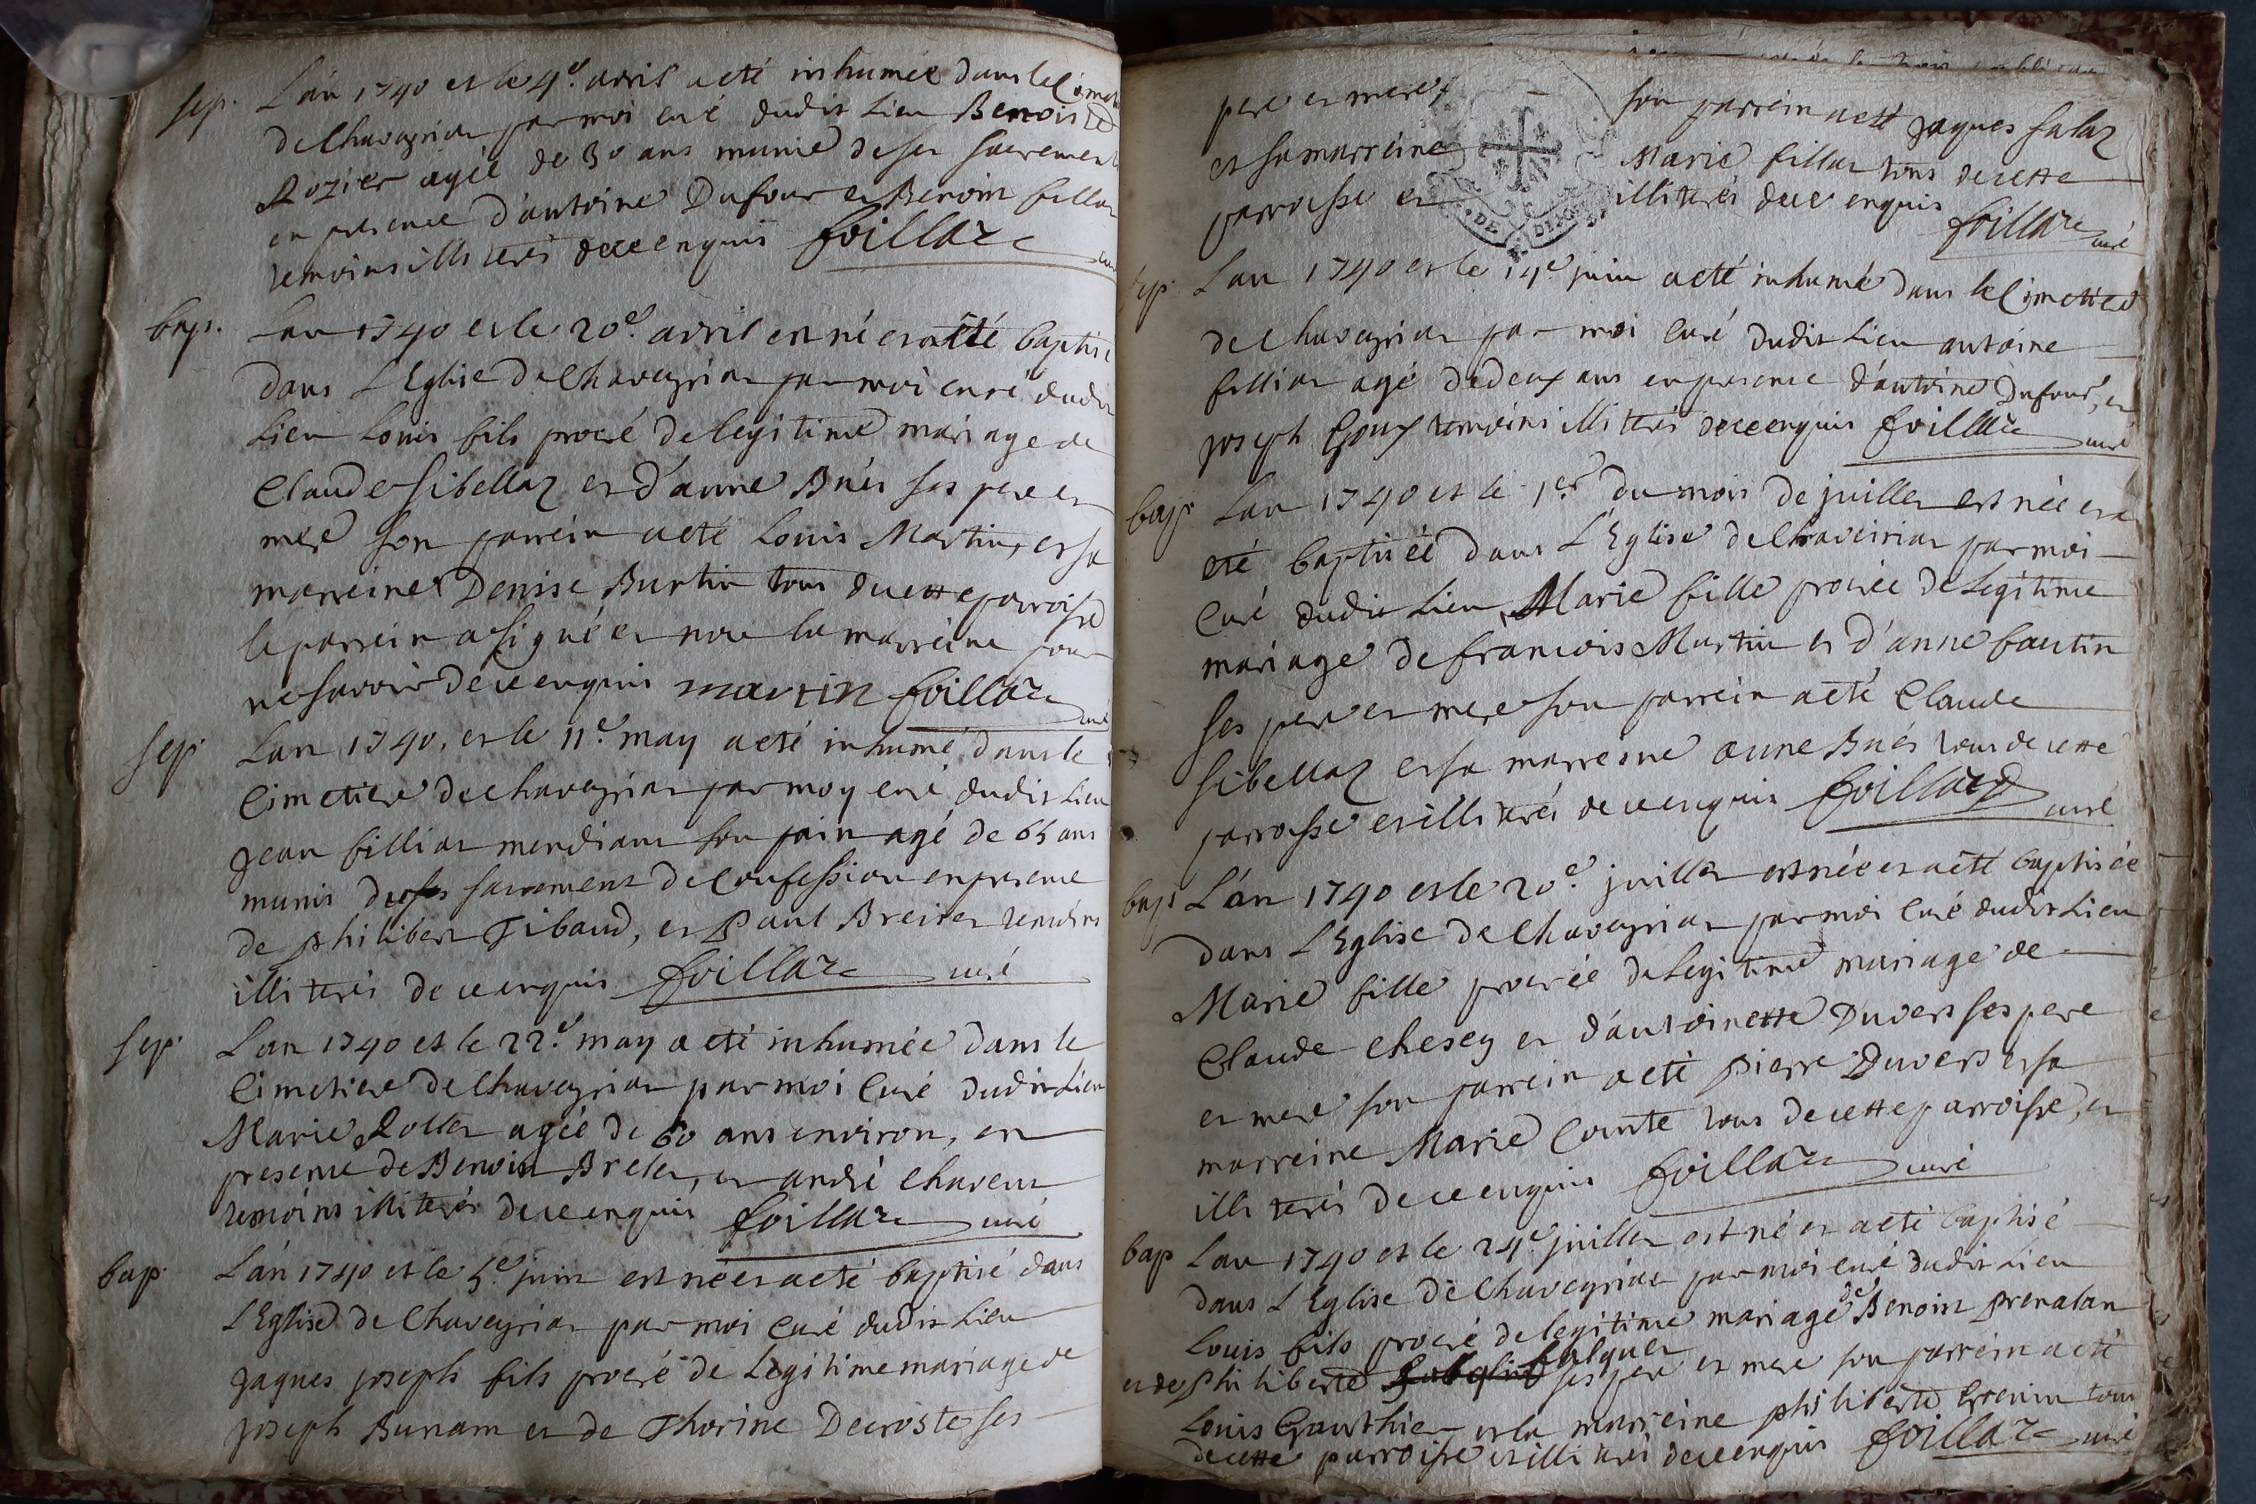 sep. L'an 1740 et le 4e. avril a eté inhumée dans le
de Chaveyriat par moi curé dudit lieu Benoiste
Rozier agée de 30 ans munie de ses sacrement
en presence d'antoine Dufour et Benoit fillat
temoins illiterés de ce enquis foillaz curé
bap. Lan 1740 et le 20e. avril en né et a été baptisé
dans L'Eglise de Chaveyriat par moi curé dudit
Lieu Louis fils procré de legitime mariage de
Claude Sibellaz et d'anne Bnés ses pere et
mere son parrein a eté Louis Martin, et sa
marreine Denise Burtin tous de cette parroisse
le parrein a signé et non la marreine pour
ne savoir de ce enquis martin foillaz curé
sep. Lan 1740. et le 11e. may a eté inhumé dans le
Cimetiere de chaveyriat par moy curé dudit Lieu
Jean filliat mendiant son pain agé de 65 ans
munis de ses sacrement de Confession en presence
de philibert Tibaud, et Paul Breiret temoins
illiterés de ce enquis foillaz curé
sep. Lan 1740 et le 22e. may a eté inhumée dans le
Cimetiere de Chaveyriat par moi Curé dudit Lieu
Marie Rollet agée de 60 ans environ, en
presence de Benoit Brelet, et andré Chavent
temoins illiterés de ce enquis foillaz curé
bap. L'an 1740 et le 5e. juin est né et a eté baptisé dans
L'Eglise de Chaveyriat par moi Curé dudit Lieu
Jaques joseph fils procré de Legitime mariage de
joseph Bunam et de Thorine Decroste ses
pere et mere, son parrein a eté Jaques Salaz
et sa marreine Marie fillat tous de cette
parroisse et illiterés de ce enquis foillaz curé
sep. Lan 1740 et le 14e. juin a eté inhumé dans le Cimetiere
de Chaveyriat par moi Curé dudit Lieu antoine
filliat agé de deux ans en presence d'antoine Dufour, et
joseph Goux temoins illiterés de ce enquis foillaz curé
bap. Lan 1740 et le 1er du mois de juillet est née et a
eté baptisée dans L'Eglise de Chaveiriat par moi
Curé dudit Lieu Marie fille procrée de Legitime
mariage de francois Martin et d'anne fautin
ses pere et mere son parrein a eté Claude
Sibellaz et sa marresne anne Bnés tous de cette
parroisse et illiterés de ce enquis foillaz curé
bap. L'an 1740 et le 20e. juillet est née et a eté baptisée
dans L'Eglise de Chaveyriat par moi Curé dudit Lieu
Marie fille procrée de Legitime mariage de
Claude Chesey et d'antoinette Duvers ses pere
et mere son parrein a eté pierre Duvers et sa
marreine Marie Comte tous de cette parroisse, et
illiterés de ce enquis foillaz curé
bap Lan 1740 et le 24e. juillet est né et a eté baptisé
dans L'Eglise de Chaveyriat par moi curé dudit Lieu
Louis fils procré de legitime mariage de Benoit prenalan
et de philiberte falquet ses pere et mere son parrein a eté
Louis Gauthier et la marreine philiberte tous
de cette parroisse et illiterés de ce enquis foillaz curé